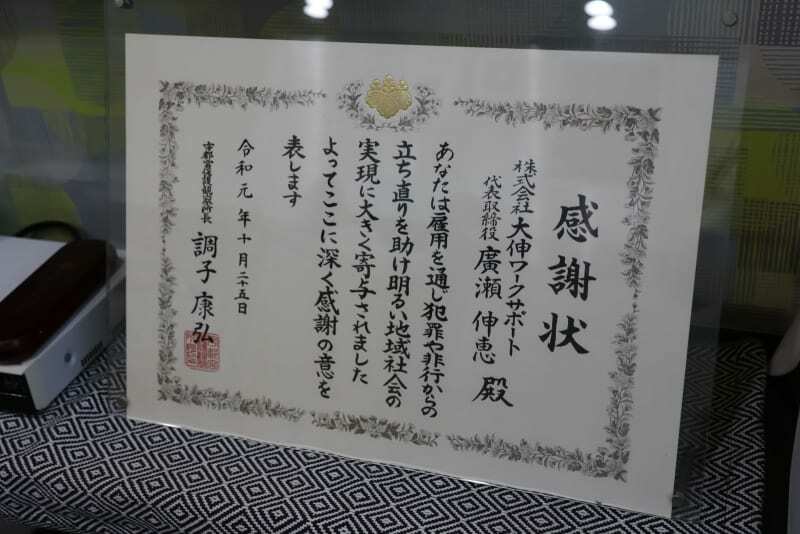 感謝状
株式会社大伸ワークサポート
代表取締役 廣瀬 伸恵 殿
あなたは雇用を通じ犯罪や非行からの
立ち直りを助け明るい地域社会の
実現に大きく寄与されました
よってここに深く感謝の意を
表します
令和元年十月二十五日
宇都宮保護観察所長 調子 康弘